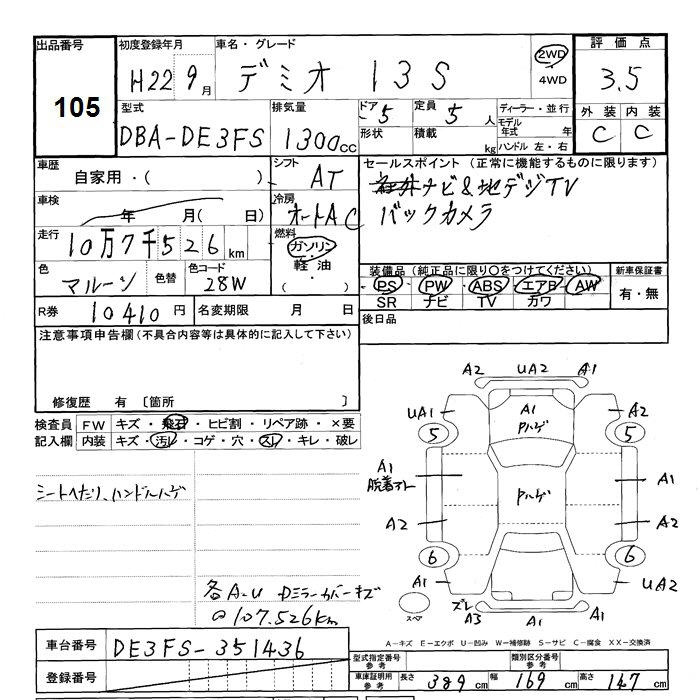 出品番号 初度登録年月 車名・グレード 評価点
105 H22 9月 デミオ 13S 2WD 4WD 3.5
型式 排気量 ドア 定員 ディーラー・並行 外装 内装
DBA-DE3FS 1300cc 5 5人 モデル年式 年 C C
形状 積載 kg ハンドル 左・右
車歴 シフト セールスポイント (正常に機能するものに限ります)
自家用・( ) AT ナビ&地デジTV
車検 冷房 バックカメラ
年 月( 日) オートAC
走行 燃料
10万7千526km ガソリン
軽油
( )
色 色替 色コード 装備品 (純正品に限り○をつけてください) 新車保証書
マルーン 28W PS PW ABS エアB AW 有・無
SR ナビ TV カワ
R券 10410円 名変期限 月 日 後日品
注意事項申告欄 (不具合内容等は具体的に記入して下さい)
修復歴 有 〔箇所 〕
検査員 FW キズ・飛石・ヒビ割・リペア跡・×要
記入欄 内装 キズ・汚レ・コゲ・穴・スレ・キレ・破レ
シートヘたり、ハンドルハゲ
各A-U Dミラーカバーキズ
@107.526km
A2 UA2 A1
UA1 A1 A2
5 Pハゲ 5
A1 A1
脱着アト Pハゲ
A2 A2
6 6
A1 UA2
スペア ズレ A3 A1 A1
A-キズ E-エクボ U-凹み W-補修跡 S-サビ C-腐食 XX-交換済
車台番号 DE3FS-351436
登録番号
型式指定番号 参考 類別区分番号 参考
車庫証明用 参考 長さ 389cm 幅 169cm 高さ 147cm